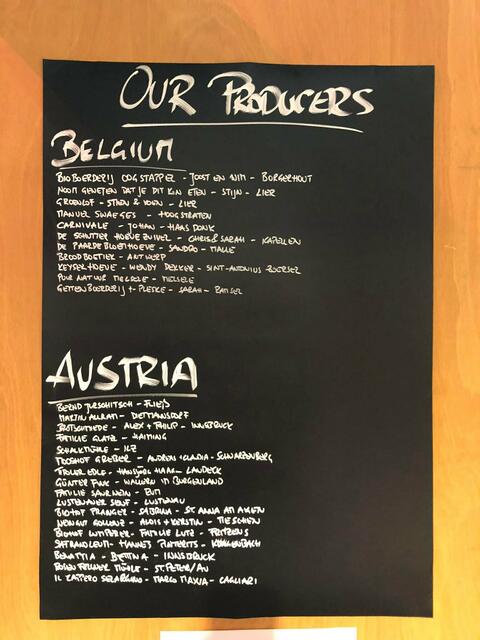 OUR PRODUCERS
BELGIUM
BIOBOERDERIJ OOGSTAPPEL - JOOST EN WIM - BORGERHOUT
NOOIT GEWETEN DAT JE DIT KAN ETEN - STIJN - LIER
GROENLOF - STIJN & KOEN - LIER
MANUEL SWAEGES - HOOGSTRATEN
CARNIVALE - JOHAN - HAASDONK
DE SCHUTTER HOEVEZUIVEL - CHRIS & SARAH - KAPELLEN
DE PAARDEBLOEMHOEVE - SANDRO - MALLE
BROODBOETIEK - ANTWERP
KEYSELHOEVE - WENDY DEKKER - SINT-ANTONIUS ZOERSEL
PUUR NATUUR MELSELE - MELSELE
GEITENBOERDERIJ - SARAH -
AUSTRIA
BERND JURSCHITSCH - FLIEß
MARTIN ALLRAM - DIETMANSDORF
BROTSCHMIEDE - ALEX + PHILIP - INNSBRUCK
FAMILIE GLATZ - HAIMING
SCHALKMÜHLE - ILZ
MOOSHOF GREBER - ANDREA + CLAUDIA - SCHWARZENBERG
TIROLER EDLE - HANSJÖRG HAAG - LANDECK
GÜNTER - WALLERN IM BURGENLAND
FAMILIE
LUSTENAUER SENF - LUSTENAU
BIOHOF PRANGER - SABRINA - ST. ANNA AM AIGEN
WEINGUT GOLLENZ - ALOIS + KERSTIN - TIESCHEN
BIOHOF - FAMILIE LUTZ - FRITZENS
SAFRANOLEUM - HANNES PINTERITS - KLINGENBACH
BENATTIA - BETTINA - INNSBRUCK
MÜHLE - ST. PETER/AU
IL ZAPPERO SELARGINO - MARCO MAXIA - CAGLIARI